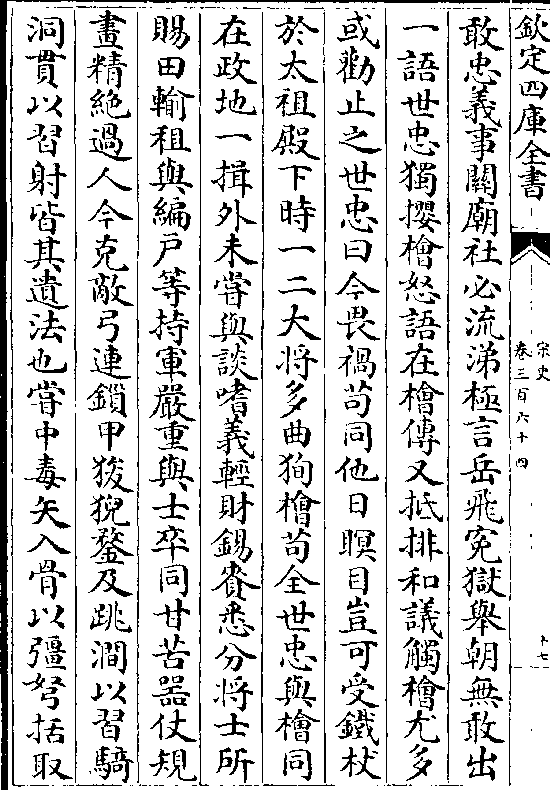 欽定四庫全書
宋史
卷三百六十四
十七
敢忠義事關廟社必流涕極言岳飛寃獄舉朝無敢出
一語世忠獨攖檜怒語在檜傳又抵排和議觸檜尤多
或勸止之世忠曰今畏禍苟同他日瞑目豈可受鐵杖
於太祖殿下時一二大將多曲狥檜苟全世忠與檜同
在政地一揖外未嘗與談嗜義輕財錫賚悉分將士所
賜田輸租與編戶等持軍嚴重與士卒同甘苦器仗規
畫精絶過人今克敵弓連鎖甲狻猊鍪及跳澗以習騎
洞貫以習射皆其遺法也嘗中毒矢入骨以彊弩括取